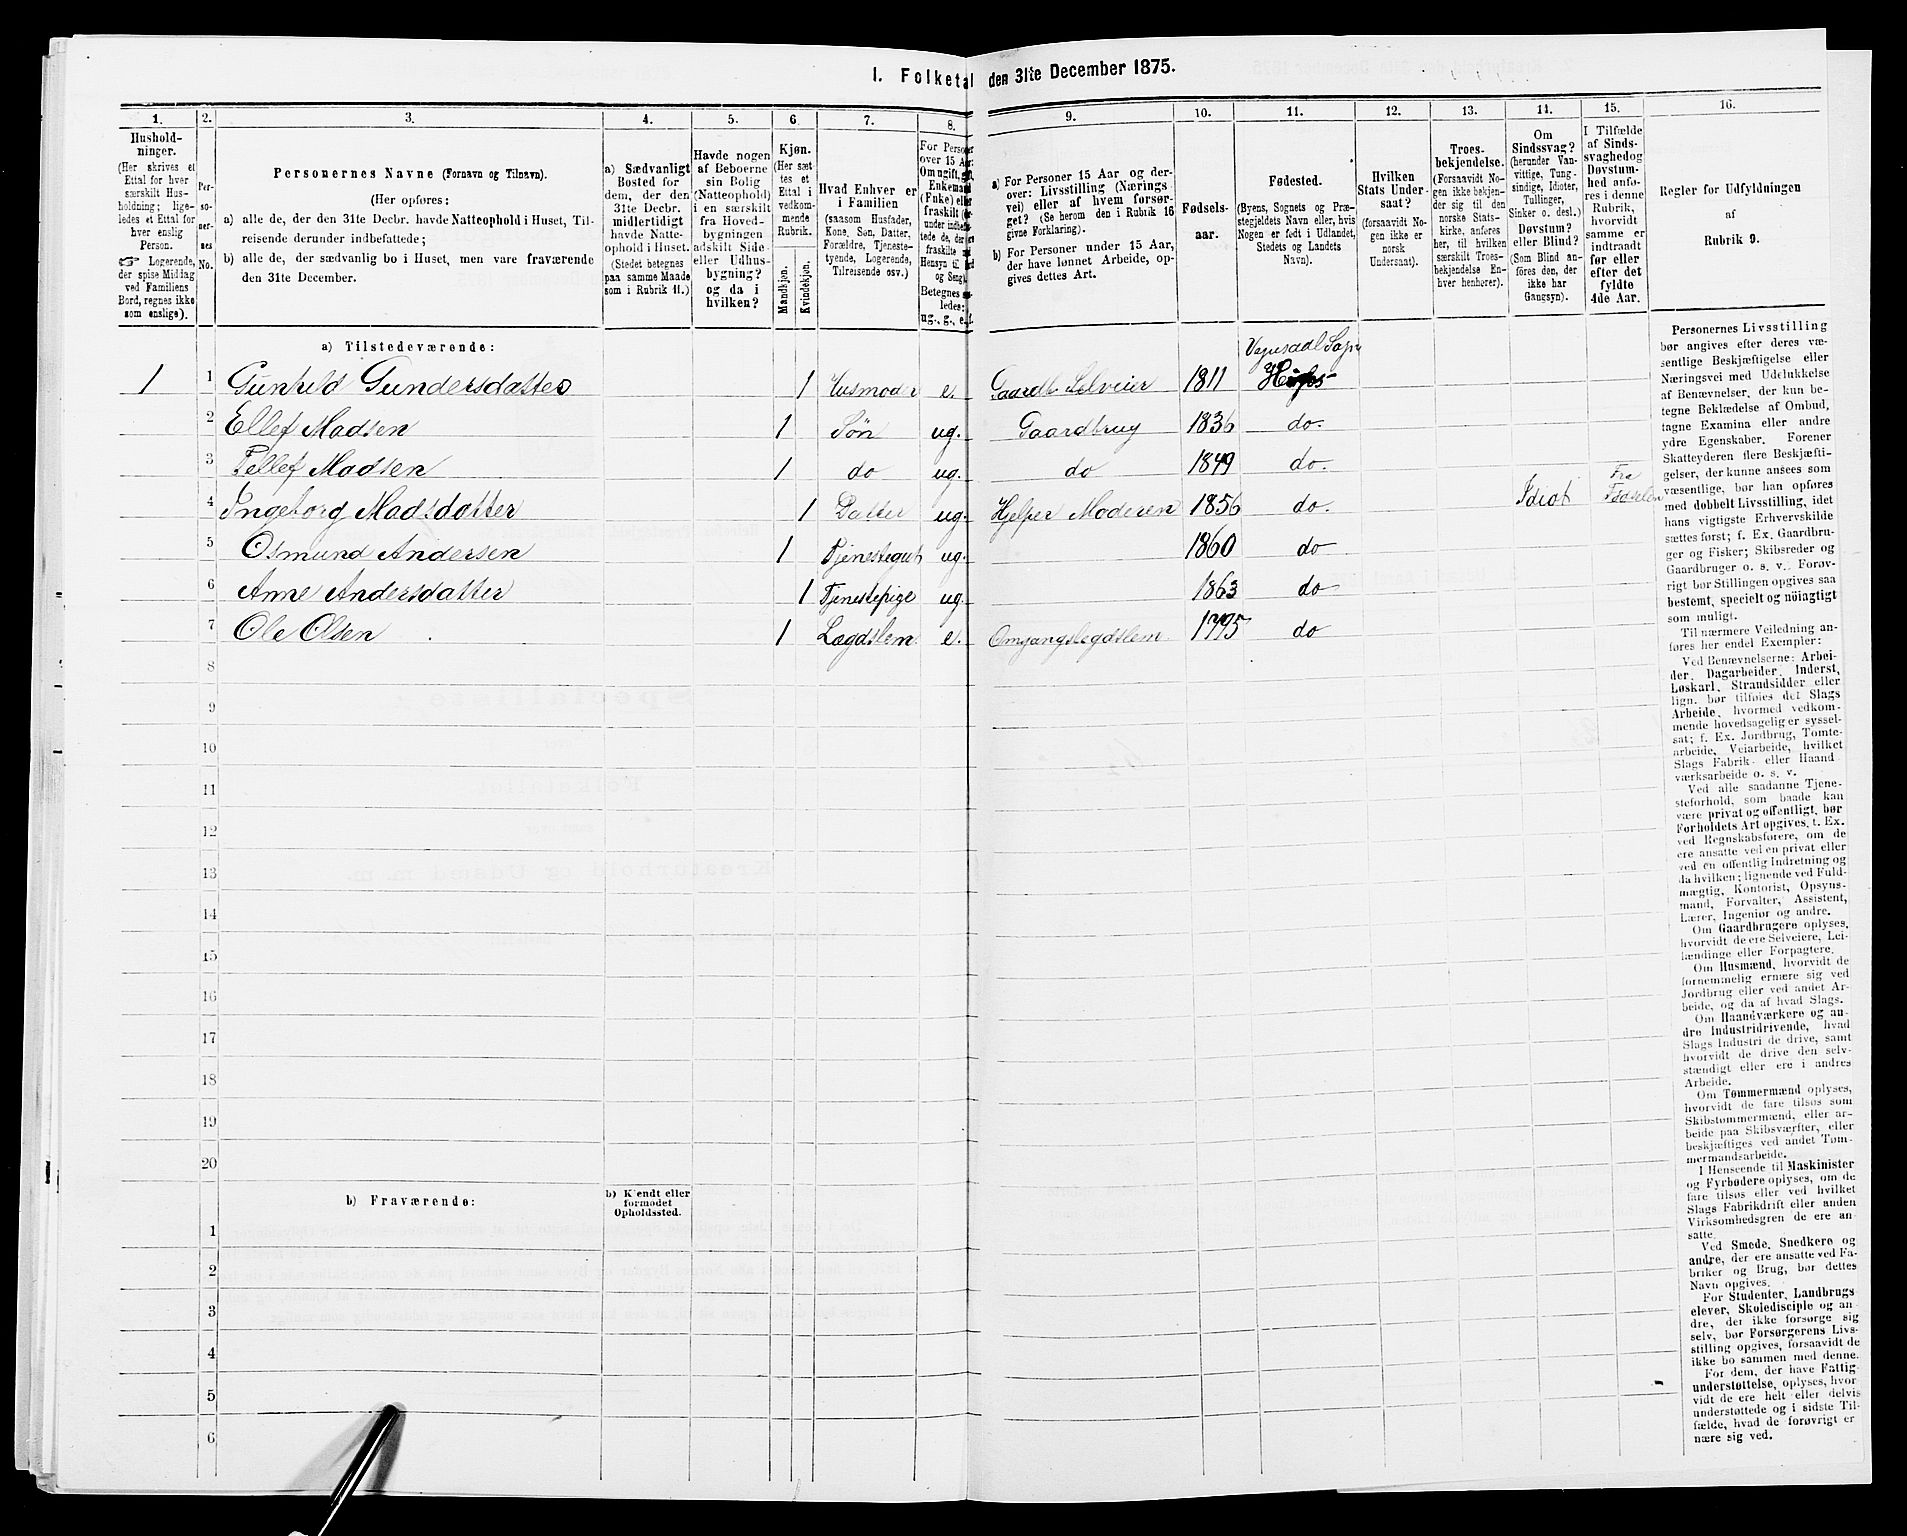 I. Folketal den 31te December 1875.
1. 2. 3. 4. 5. 6. 7. 8. 9. 10. 11. 12. 13. 14. 15. 16.
Hushold-
ninger.
(Her skrives et
Ettal for hver
særskilt Hus-
holdning; lige-
ledes et Ettal for
hver enslig
Person.
☞ Logerende,
der spise Middag
ved Familiens
Bord, regnes ikke
som enslige).
Per-
so-
ner-
nes
No.
Personernes Navne (Fornavn og Tilnavn).
(Her opføres:
a) alle de, der den 31te Decbr. havde Natteophold i Huset, Til-
reisende derunder indbefattede;
b) alle de, der sædvanlig bo i Huset, men vare fraværende
den 31te December.
a) Sædvanligt
Bosted for
dem, der den
31te Decbr.
midlertidigt
havde Natte-
ophold i Huset.
(Stedet betegnes
paa samme Maade
som i Rubrik 11.)
Havde nogen
af Beboerne
sin Bolig
(Natteophold)
i en særskilt
fra Hoved-
bygningen
adskilt Side-
eller Udhus-
bygning?
og da i
hvilken?
Kjøn.
(Her sæt-
tes et
Ettal i
vedkom-
mende
Rubrik.
Mandkjøn.
Kvindekjøn.
Hvad Enhver er
i Familien
(saasom Husfader,
Kone, Søn, Datter,
Forældre, Tjeneste-
tyende, Logerende,
Tilreisende osv.)
For Personer
over 15 Aar:
Om ugift, gift,
Enkemand
(Enke) eller
fraskilt
Betegnes
ledes:
ug., g., e., f.
a) For Personer 15 Aar og der-
over: Livsstilling (Nærings-
vei) eller af hvem forsør-
get? (Se herom den i Rubrik 16
givne Forklaring).
b) For Personer under 15 Aar,
der have lønnet Arbeide, op-
gives dettes Art.
Fødsels-
aar.
Fødested.
(Byens, Sognets og Præ-
stegjeldets Navn eller, hvis
Nogen er født i Udlandet,
Stedets og Landets
Navn).
Hvilken
Stats Under-
saat?
(forsaavidt No-
gen ikke er
norsk
Undersaat).
Troes-
bekjendelse.
(Forsaavidt No-
gen ikke bekjen-
der sig til den
norske Stats-
kirke, anføres
her, til hvilken
særskilt Troes-
bekjendelse En-
hver henhører).
Om
Sindssvag?
(herunder Van-
vittige, Tung-
sindige, Idioter,
Tullinger,
Sinker o. desl.)
Døvstum?
eller Blind?
(Som Blind an-
føres den, der
ikke har
Gangsyn).
I Tilfælde
af Sinds-
svaghed og
Døvstum-
hed anfø-
res i denne
Rubrik,
hvorvidt
samme er
indtraadt
før eller
efter det
fyldte
4de Aar.
Regler for Udfyldningen
af
Rubrik 9.
a) Tilstedeværende:
1 1 Gunhild Gundersdatter 1 Husmoder e. Gaardb. Selveier 1811 Vegusdal Sogn
2 Ellef Madsen 1 Søn ug. Gaardbrug 1836 do.
3 Tellef Madsen 1 do ug. do 1849 do.
4 Ingeborg Madsdatter 1 Datter ug. Hjelper Moderen 1856 do. Idiot Fra Fødselen
5 Osmund Andersen 1 Tjenestegut ug. 1860 do
6 Anne Andersdatter 1 Tjenestepige ug. 1863 do
7 Ole Olsen 1 Lægdslem e. Omgangslegdslem 1795 do
8
9
10
11
12
13
14
15
16
17
18
19
20
b) Fraværende:
b) Kjendt eller
formodet
Opholdssted.
1
2
3
4
5
6
Personernes Livsstilling
bør angives efter deres væ-
sentlige Beskjæftigelse eller
Næringsvei med Udelukkelse
af Benævnelser, der kun be-
tegne Beklædelse af Ombud,
tagne Examina eller andre
ydre Egenskaber. Forener
Skatteyderen flere Beskjæfti-
gelser, der kunne ansees som
væsentlige, bør han opføres
med dobbelt Livsstilling, idet
hans vigtigste Erhvervskilde
sættes først; f. Ex. Gaardbru-
ger og Fisker; Skibsreder og
Gaardbruger o. s. v. Forøv-
rigt bør Stillingen opgives saa
bestemt, specielt og nöiagtigt
som muligt.
Til nærmere Veiledning an-
føres her endel Exempler:
Ved Benævnelserne: Arbei-
der, Dagarbeider, Inderst,
Løskarl, Strandsidder eller
lign. bør tilføies det Slags
Arbeide, hvormed vedkom-
mende hovedsagelig er syssel-
sat; f. Ex. Jordbrug, Tomte-
arbeide, Veiarbeide, hvilket
Slags Fabrik- eller Haand
værksarbeide o. s. v.
Ved alle saadanne Tjene-
steforhold, som baade kan
være privat og offentligt, bør
Forholdets Art opgives, t. Ex.
ved Regnskabsførere, om de
ere ansatte ved en privat eller
ved en offentlig Indretning og
da hvilken; lignende ved Fuld-
mægtig, Kontorist, Opsyns-
mand, Forvalter, Assistent,
Lærer, Ingeniør og andre.
Om Gaardbrugere oplyses,
hvorvidt de ere Selveiere, Lei-
lændinge eller Forpagtere.
Om Husmænd, hvorvidt de
fornemmelig ernære sig ved
Jordbrug eller ved andet Ar-
beide, og da af hvad Slags.
Om Haandværkere og an-
dre Industridrivende, hvad
Slags Industri de drive, samt
hvorvidt de drive den selv-
stændigt eller ere i andres
Arbeide.
Om Tømmermænd oplyses,
hvorvidt de fare tilsøs som
Skibstømmermænd, eller ar-
beide paa Skibsværfter, eller
beskjæftiges ved andet Tøm-
mermandsarbeide.
I Henseende til Maskinister
og Fyrbødere oplyses, om de
fare tilsøs eller ved hvilket
Slags Fabrikdrift eller anden
Virksomhedsgren de ere an-
satte.
Ved Smede, Snedkere og
andre, der ere ansatte ved Fa-
briker og Brug, bør dettes
Navn opgives.
For Studenter, Landbrugs
elever, Skoledisciple og an
dre, der ikke forsørge sig
selv, bør Forsørgerens Livs-
stilling opgives, forsaavidt de
ikke bo sammen med denne.
For dem, der have Fattig-
understøttelse, oplyses, hvor-
vidt de ere helt eller delvis
understøttede og i sidste Til-
fælde, hvad de forøvrigt er
nære sig ved.